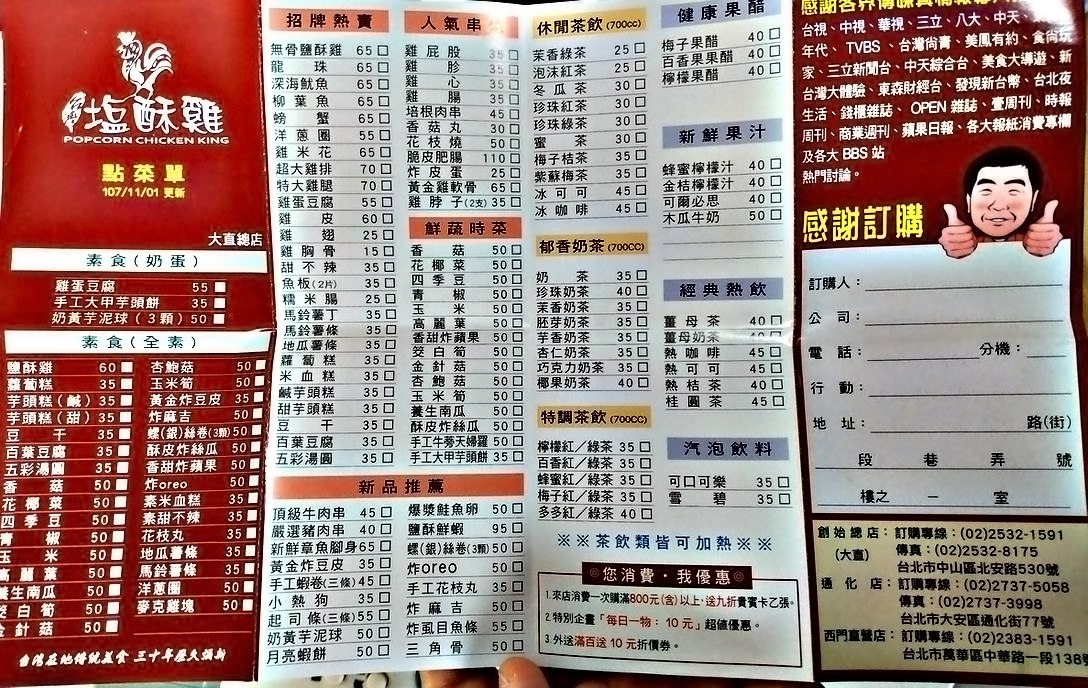 塩酥雞
POPCORN CHICKEN KING
點菜單
107/11/01 更新
大直總店
素食(奶蛋)
雞蛋豆腐 55
手工大甲芋頭餅 35
奶黃芋泥球(3顆) 50
素食(全素)
鹽酥雞 60
蘿蔔糕 35
芋頭糕(鹹) 35
芋頭糕(甜) 35
豆干 35
百葉豆腐 35
五彩湯圓 35
香菇 50
花椰菜 50
四季豆 50
青椒 50
玉米 50
高麗葉 50
養生南瓜 50
茭白筍 50
金針菇 50
杏鮑菇 50
玉米筍 50
黃金炸豆皮 35
炸麻吉 50
螺(銀)絲卷(3顆) 50
酥皮炸絲瓜 50
香甜炸蘋果 50
炸oreo 50
素米血糕 35
素甜不辣 35
花枝丸 35
地瓜薯條 35
馬鈴薯條 35
洋蔥圈 50
麥克雞塊 50
台灣在地傳統美食 三十年歷久彌新
招牌熱賣
無骨鹽酥雞 65
龍珠 65
深海魷魚 65
柳葉魚 65
螃蟹 65
洋蔥圈 55
雞米花 65
超大雞排 70
特大雞腿 70
雞蛋豆腐 55
雞皮 60
雞翅 25
雞胸骨 15
甜不辣 35
魚板(2片) 35
糯米腸 25
馬鈴薯丁 35
馬鈴薯條 35
地瓜薯條 35
蘿蔔糕 35
米血糕 35
鹹芋頭糕 35
甜芋頭糕 35
豆干 35
百葉豆腐 35
五彩湯圓 35
人氣串
雞屁股 35
雞胗 35
雞心 35
雞腸 35
培根肉串 45
香菇丸 30
花枝燒 50
脆皮肥腸 110
炸皮蛋 25
黃金雞軟骨 65
雞脖子(2支) 35
鮮蔬時菜
香菇 50
花椰菜 50
四季豆 50
青椒 50
玉米 50
高麗葉 50
香甜炸蘋果 50
茭白筍 50
金針菇 50
杏鮑菇 50
玉米筍 50
養生南瓜 50
酥皮炸絲瓜 50
手工牛蒡天婦羅 50
手工大甲芋頭餅 35
新品推薦
頂級牛肉串 45
嚴選豬肉串 40
新鮮章魚腳身 65
黃金炸豆皮 35
手工蝦卷(三條) 45
小熱狗 35
起司條(三條) 55
奶黃芋泥球 50
月亮蝦餅 50
爆漿鮭魚卵 50
鹽酥鮮蝦 95
螺(銀)絲卷(3顆) 50
炸oreo 50
手工花枝丸 35
炸麻吉 50
炸虱目魚條 55
三角骨 50
休閒茶飲(700cc)
茉香綠茶 25
泡沫紅茶 25
冬瓜茶 30
珍珠紅茶 30
珍珠綠茶 30
蜜茶 30
梅子桔茶 35
紫蘇梅茶 35
冰可可 45
冰咖啡 45
郁香奶茶(700CC)
奶茶 35
珍珠奶茶 40
茉香奶茶 35
胚芽奶茶 35
芋香奶茶 35
杏仁奶茶 35
巧克力奶茶 35
椰果奶茶 40
特調茶飲(700CC)
檸檬紅/綠茶 35
百香紅/綠茶 35
蜂蜜紅/綠茶 35
梅子紅/綠茶 35
多多紅/綠茶 40
健康果醋
梅子果醋 40
百香果果醋 40
檸檬果醋 40
新鮮果汁
蜂蜜檸檬汁 40
金桔檸檬汁 40
可爾必思 40
木瓜牛奶 50
經典熱飲
薑母茶 40
薑母奶茶
熱咖啡 45
熱可可 45
熱桔茶 40
桂圓茶 45
汽泡飲料
可口可樂 35
雪碧 35
※※茶飲類皆可加熱※※
◎您消費・我優惠◎
1.來店消費一次購滿800元(含)以上,送九折貴賓卡乙張。
2.特別企畫「每日一物:10元」超值優惠。
3.外送滿百送10元折價券。
台視、中視、華視、三立、八大、中天、
年代、TVBS、台灣尚青、美鳳有約、食尚玩
家、三立新聞台、中天綜合台、美食大導遊、新
台灣大體驗、東森財經台、發現新台幣、台北夜
生活、錢櫃雜誌、OPEN雜誌、壹周刊、時報
周刊、商業週刊、蘋果日報、各大報紙消費專欄
及各大 BBS 站
熱門討論。
感謝訂購
訂購人:
公司:
電話: 分機:
行動:
地址: 路(街)
段 巷 弄 號
樓之 — 室
創始總店:訂購專線:(02)2532-1591
(大直) 傳真:(02)2532-8175
台北市中山區北安路530號
通化店:訂購專線:(02)2737-5058
傳真:(02)2737-3998
台北市大安區通化街77號
西門直營店:訂購專線:(02)2383-1591
台北市萬華區中華路一段138號